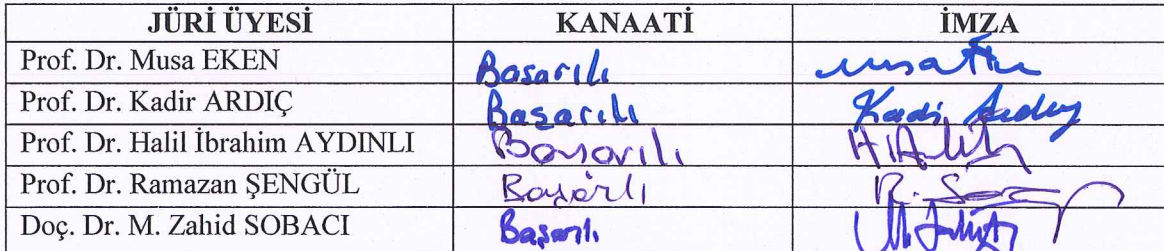 JÜRİ ÜYESİ KANAATİ İMZA
Prof. Dr. Musa EKEN Başarılı
Prof. Dr. Kadir ARDIÇ Başarılı Kadir Ardıç
Prof. Dr. Halil İbrahim AYDINLI Başarılı
Prof. Dr. Ramazan ŞENGÜL Başarılı
Doç. Dr. M. Zahid SOBACI Başarılı